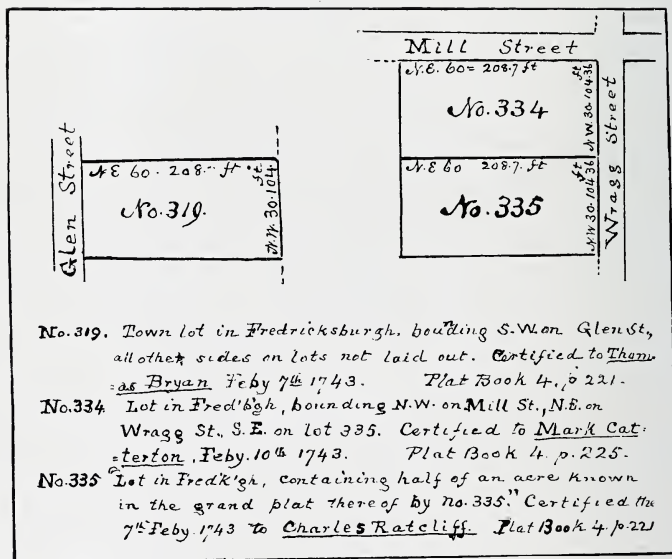 Mill Street
N.E. 60= 208.7 ft
No. 334
N.W. 30.104.36 ft
Wragg Street
N.E. 60 208.7. ft
No. 335
N.W. 30.104.36 ft
Glen Street
N.E 60. 208.- ft.
No. 319.
N.W. 30.104. ft.
No. 319. Town lot in Fredricksburgh, bouding S.W. on Glen St.,
all other sides on lots not laid out. Certified to Thom-
=as Bryan Feby 7th 1743. Plat Book 4, p 221.
No. 334 Lot in Fred'bgh, bounding N.W. on Mill St., N.E. on
Wragg St., S.E. on lot 335. Certified to Mark Cat=
=terton, Feby. 10th 1743. Plat Book 4. p. 225.
No. 335 "Lot in Fredk'gh, containing half of an acre known
in the grand plat thereof by no. 335." Certified the
7th Feby. 1743 to Charles Ratcliff. Plat Book 4. p. 221